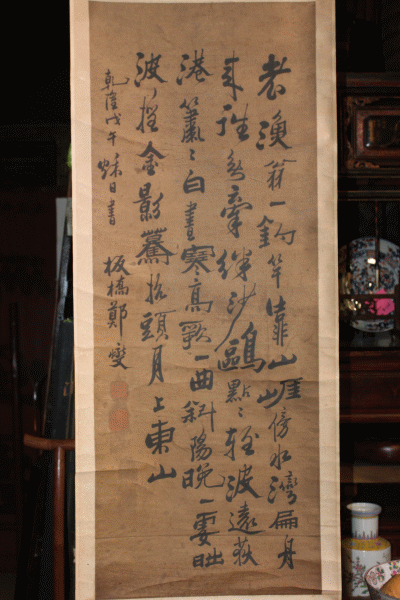 老漁翁一釣竿靠山崖傍水灣扁舟
來往無牽絆沙鷗點〻輕波遠荻
港蕭〻白晝寒高歌一曲斜陽晚一霎時
波搖金影驀抬頭月上東山
乾隆戊午秋日書 板橋鄭燮